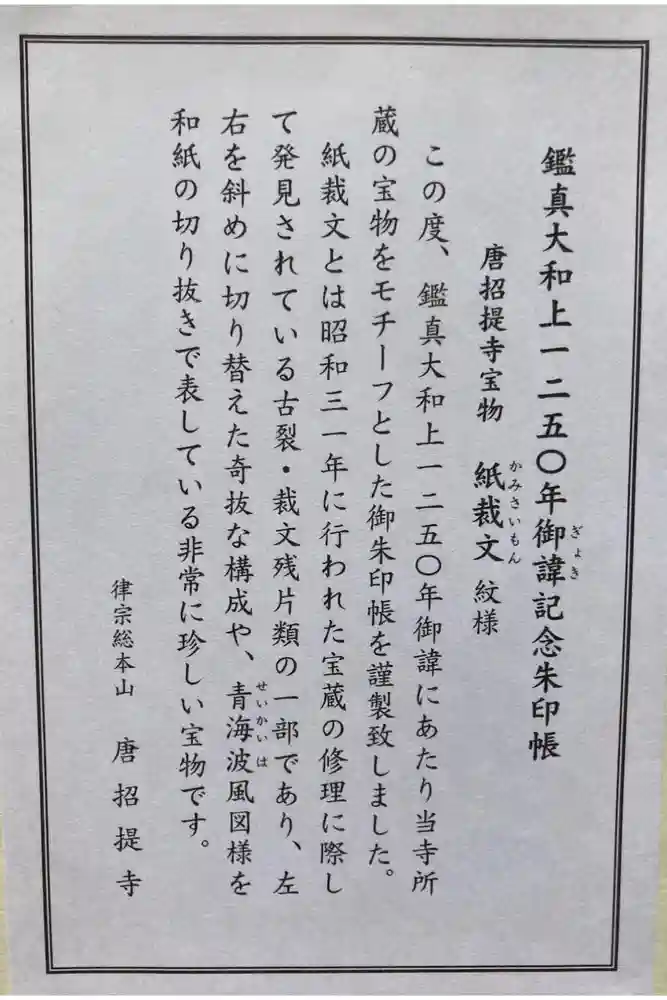 鑑真大和上一二五〇年御諱記念朱印帳
ぎょき
唐招提寺宝物 紙裁文 紋様
かみさいもん
この度、鑑真大和上一二五〇年御諱にあたり当寺所
蔵の宝物をモチーフとした御朱印帳を謹製致しました。
紙裁文とは昭和三一年に行われた宝蔵の修理に際し
て発見されている古裂・裁文残片類の一部であり、左
右を斜めに切り替えた奇抜な構成や、青海波風図様を
せいかいは
和紙の切り抜きで表している非常に珍しい宝物です。
律宗総本山 唐招提寺